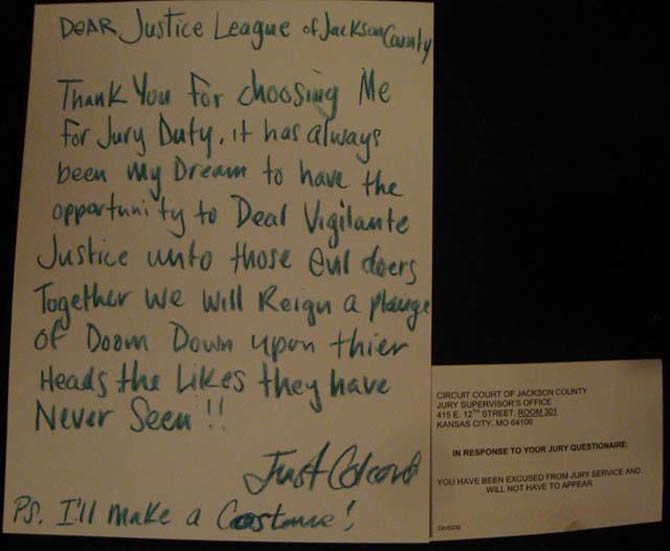 DEAR Justice League of Jackson County
Thank You for choosing Me
for Jury Duty, it has always
been my Dream to have the
opportunity to Deal Vigilante
Justice unto those evil doers
Together We Will Reign a plauge
of Doom Down upon thier
Heads the Likes they have
Never Seen!!
Just
PS. I'll make a Costume!
CIRCUIT COURT OF JACKSON COUNTY
JURY SUPERVISOR'S OFFICE
415 E. 12TH STREET, ROOM 301
KANSAS CITY, MO 64106
IN RESPONSE TO YOUR JURY QUESTIONAIRE:
YOU HAVE BEEN EXCUSED FROM JURY SERVICE AND
WILL NOT HAVE TO APPEAR